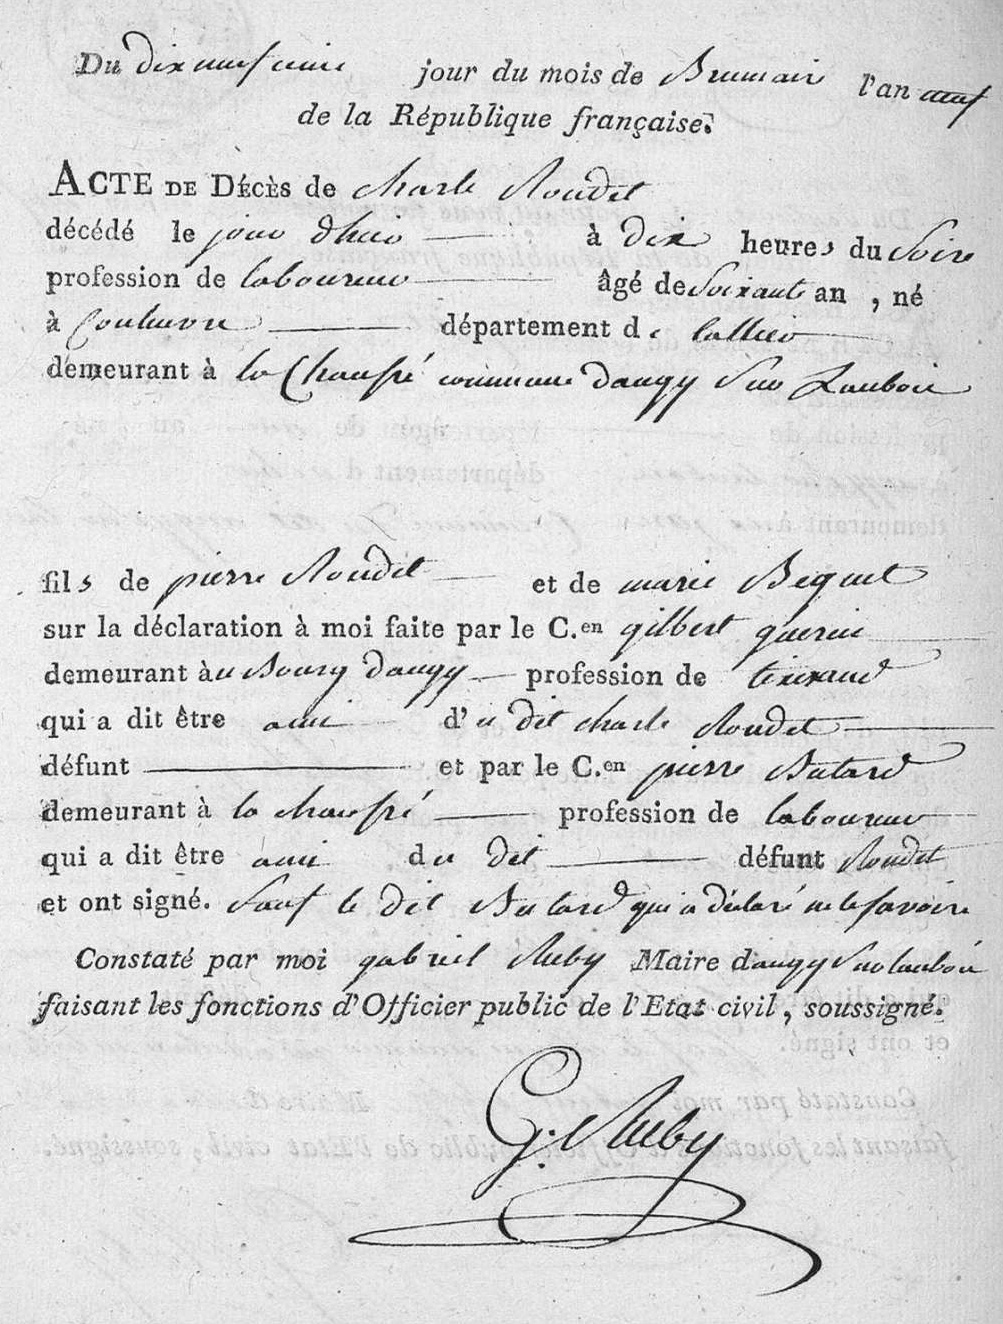 Du dix neufvime jour du mois de Brumair l'an neuf
de la République française.
ACTE DE DÉCÈS de charle Roudet
décédé le jour dhuo à dix heures du Soire
profession de laboureur âgé de Soixante an , né
à Couleuvre département de lallier
demeurant à la Chaussé commune daugy Sur Laubois
fils de pierre Roudet et de marie Bequet
sur la déclaration à moi faite par le C.en gilbert guerin
demeurant àu Bourg daugy profession de tixerand
qui a dit être ami d'u dit charle Roudet
défunt et par le C.en pierre Butard
demeurant à la chaussé profession de laboureur
qui a dit être ami du dit défunt Roudet
et ont signé. Sauf le dit Butard qui a déclaré ne le savoire
Constaté par moi gabriel Auby Maire daugy Sur laubois
faisant les fonctions d'Officier public de l'Etat civil, soussigné.
G. Auby